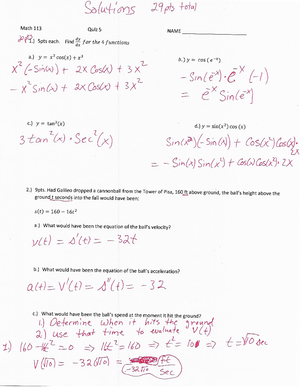 Solutions 29 pts total
Math 113 Quiz 5 NAME
20 pts
1.) 5pts each. Find dy/dx for the 4 functions
a.) y = x² cos(x) + x³ b.) y = cos(e⁻ˣ)
x²(-Sin(x)) + 2x Cos(x) + 3x² -Sin(e⁻ˣ)·e⁻ˣ(-1)
-x² Sin(x) + 2x Cos(x) + 3x² = e⁻ˣ Sin(e⁻ˣ)
c.) y = tan³(x) d.) y = sin(x²) cos(x)
3 tan²(x)·Sec²(x) Sin(x²)(-Sin(x)) + Cos(x²)Cos(x)·2x
= -Sin(x)Sin(x²) + Cos(x)Cos(x²)·2x
2.) 9pts. Had Galileo dropped a cannonball from the Tower of Pisa, 160 ft above ground, the ball's height above the
ground t seconds into the fall would have been:
s(t) = 160 − 16t²
a) What would have been the equation of the ball's velocity?
v(t) = s'(t) = -32t
b.) What would have been the equation of the ball's acceleration?
a(t) = v'(t) = s''(t) = -32
c.) What would have been the ball's speed at the moment it hit the ground?
1) Determine when it hits the ground
2) use that time to evaluate v(t)
1) 160 - 16t² = 0 ⇒ 16t² = 160 ⇒ t² = 10 ⇒ t = √10 sec
V(√10) = -32(√10) =
-32√10 ft/sec